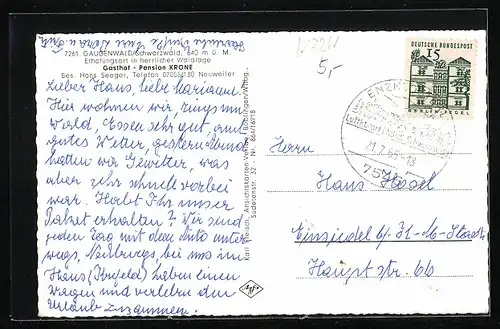 7261 GAUGENWALD/Schwarzwald, 640 m ü. M.
Erholungsort in herrlicher Waldlage
Gasthof - Pension KRONE
Bes. Hans Seeger, Telefon 07055/180 Neuweiler
Lieber Hans, liebe Marianne!
Hier wohnen wir, rings um
Wald, Essen sehr gut, auch
gutes Wetter, gestern Abend
hatten wir Gewitter, was
aber sehr schnell vorbei
war. Habt Ihr unser
Paket erhalten? Wir sind
jeden Tag mit dem Auto unter
wegs, bei uns im
Haus haben einen
Wagen und verleben den
Urlaub zusammen.
Herzliche Grüße Eure
Karl Fleisch, Ansichtskarten-Verlag, Böblingen/Württ.
Sudetenstr. 32 - Nr. 864/16918
Agfa
5,-
DEUTSCHE BUNDESPOST
15
BERLIN-TEGEL
ENZKL
Luftkurort
21.7.65-18
Herrn
Hans
Einsiedel b/ K-M-Stadt
Hauptstr. 66